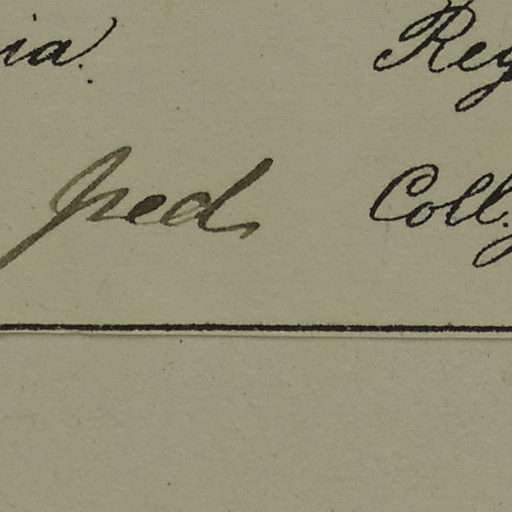 ia. Reg
fred. Coll.